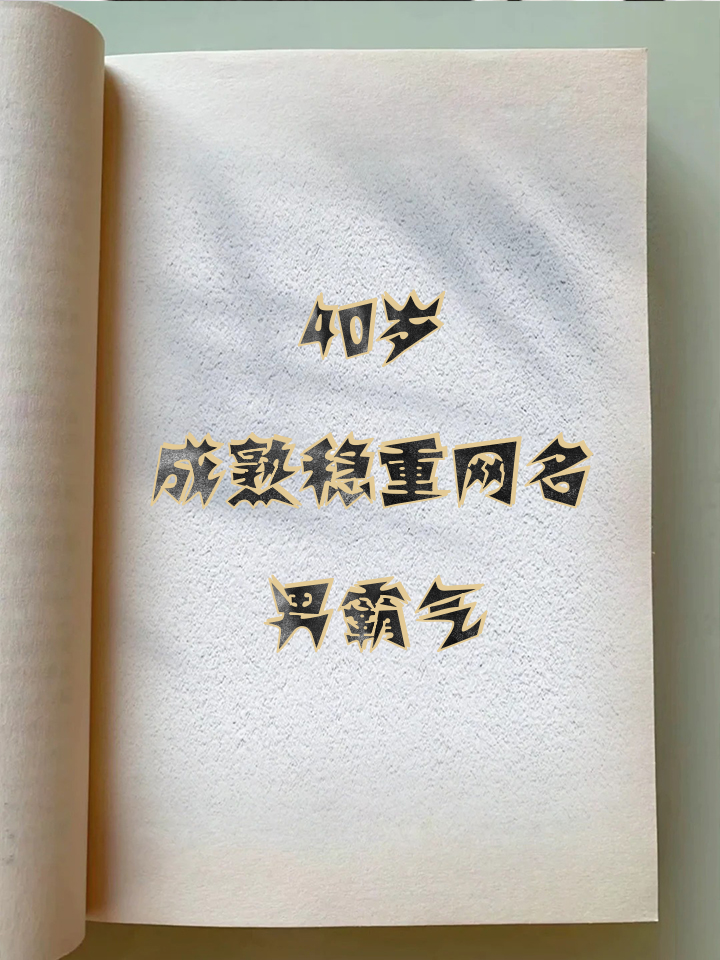 40岁
成熟稳重网名
男霸气